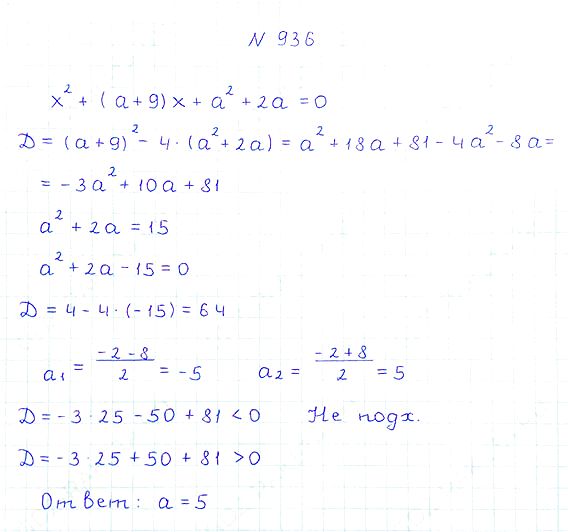 N 936
x² + (a+9)x + a² + 2a = 0
D = (a+9)² - 4·(a² + 2a) = a² + 18a + 81 - 4a² - 8a =
= -3a² + 10a + 81
a² + 2a = 15
a² + 2a - 15 = 0
D = 4 - 4·(-15) = 64
a₁ = (-2-8)/2 = -5 a₂ = (-2+8)/2 = 5
D = -3·25 - 50 + 81 < 0 Не подх.
D = -3·25 + 50 + 81 > 0
Ответ: a = 5